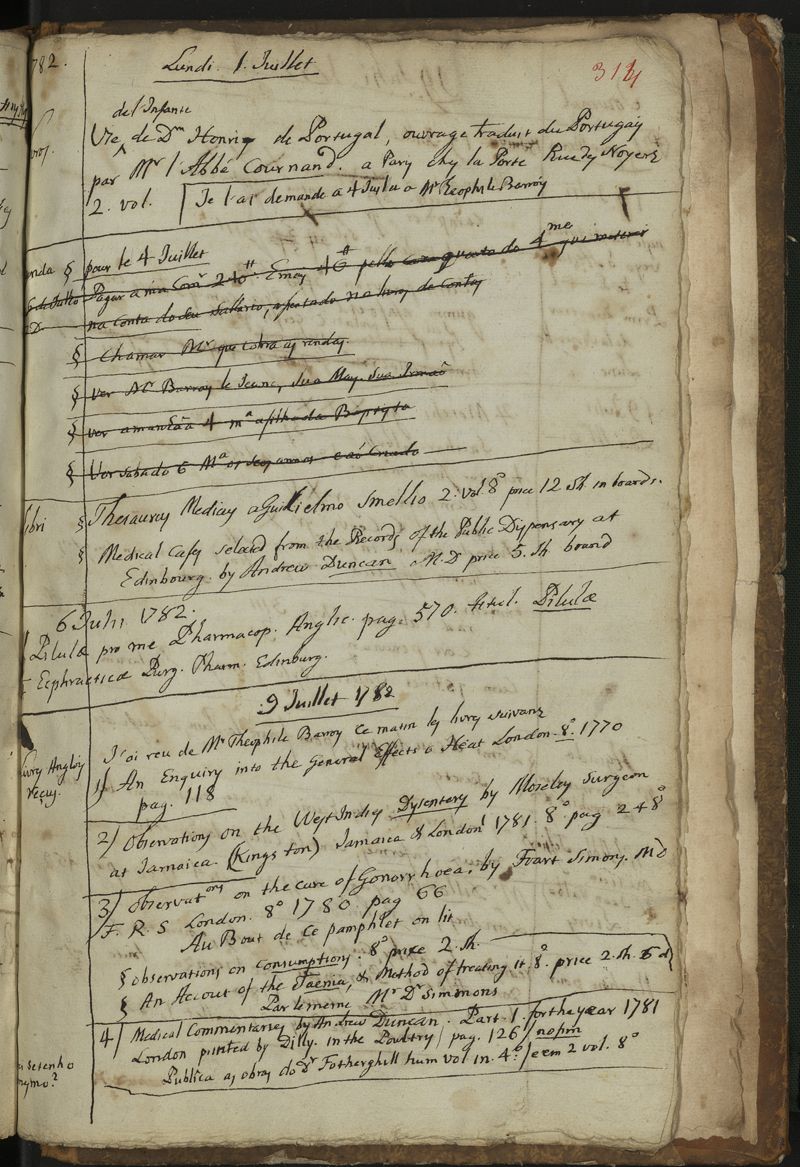 782.
Lundi 1. Juillet
314
del'Infante
Vie de Dm Honrig de Portugal, ouvrage traduit du Portugay
par Mr l'Abbé Cournand. a Pary chy la Porte Rue des Noyers
2. vol. Je l'ai demandé a 4 Juillet a Mr Theophile Barroy
§ pour le 4 Juillet
Pagar a
na Conta do seu Sallario, no livro de Contas
§ Chamar Mr que cobra as rendas
§ ver Mr Barroy le Jeune, sua May, sua Irmaõ
§ ver amanhãa 4 ma afilhada Baptista
§ Ver sabado 6 Ma e ao Criado
libri § Thesaurus Medicus a Guilielmo Smellio 2. vol. 8o price 12 Sh. in boards.
§ Medical Cases selected from the Records of the Public Dispensary at
Edinbourg. by Andrew Duncan M.D price 5. Sh. board
6 Julii 1782.
Pilulæ pro me Pharmacop. Anglic. pag. 570. titul. Pilulæ
Ecphracticæ Purg. Pharm. Edinburg.
9 Juillet 1782
livres Angloys
reçus.
J'ai reu de Mr Theophile Barroy ce matin les livres suivans
1) An Enquiry into the General Effects o Heat London. 8o. 1770
pag. 118
2) Observations on the West Indies Dysentery by Moseley Surgeon
at Jamaica. (Kings ton) Jamaica & London 1781. 8o pag 248
3) Observations on the cure of Gonorrhoea, by Foart Simons. MD
F. R. S London. 8o 1780 pag 66
Au Bout de ce pamphlet on lit
§ observations on consumptions. 8o price 2. Sh.
§ An Account of the Taenia, & Method of treating it. 8o. price 2. Sh. 6 d
Par le meme Mr Dr Simmons
4) Medical Commentaries by Andrew Duncan. Part. 1. for the year 1781
London printed by Dilly. in the Poultry / pag. 126 /
Publica as obras do Dr Fotherghill hum vol in. 4o / e em 2 vol. 8o